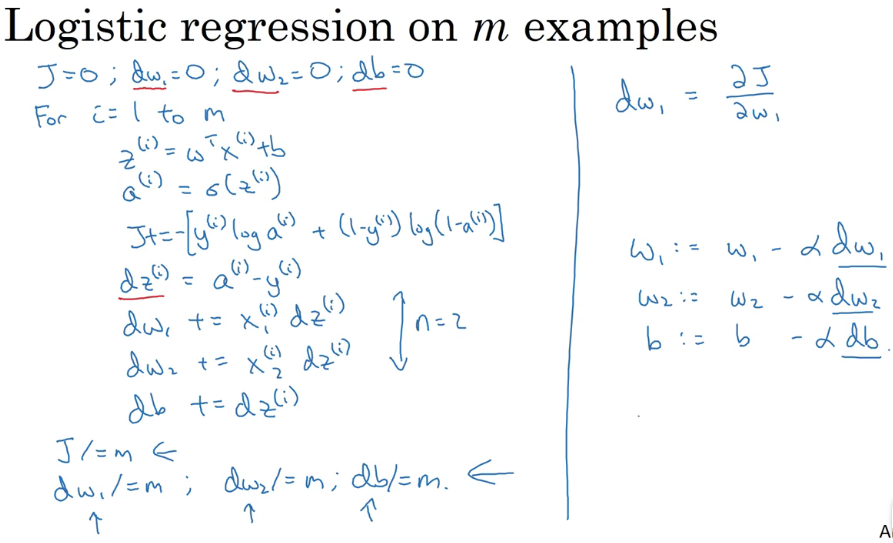 Logistic regression on m examples
J=0 ; dw₁=0 ; dw₂=0 ; db=0
For i=1 to m
z⁽ⁱ⁾ = ωᵀx⁽ⁱ⁾+b
a⁽ⁱ⁾ = σ(z⁽ⁱ⁾)
J+=-[y⁽ⁱ⁾ log a⁽ⁱ⁾ + (1-y⁽ⁱ⁾) log(1-a⁽ⁱ⁾)]
dz⁽ⁱ⁾ = a⁽ⁱ⁾-y⁽ⁱ⁾
dw₁ += x₁⁽ⁱ⁾ dz⁽ⁱ⁾
dw₂ += x₂⁽ⁱ⁾ dz⁽ⁱ⁾
n=2
db += dz⁽ⁱ⁾
J/=m ←
dw₁/=m ; dw₂/=m ; db/=m. ←
↑ ↑ ↑
dw₁ = ∂J/∂w₁
w₁ := w₁ - α dw₁
w₂ := w₂ - α dw₂
b := b - α db.